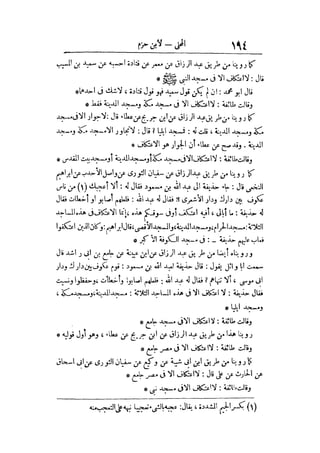 ١٩٤ المحلى — لابن حزم
كما روينا من طريق عبد الرزاق عن معمر عن قتادة احسبه عن سعيد بن المسيب
قال : لا اعتكاف الا فى مسجد النبى ﷺ *
قال ابو محمد : ان لم يكن قول سعيد فهو قول قتادة ، لا شك فى احدهما *
وقالت طائفة : لا اعتكاف الا فى مسجد مكة ومسجد المدينة فقط *
كما روينا من طريق عبد الرزاق عن ابن جريج عن عطاء قال : لا جوار الا فى مسجد
مكة ومسجد المدينة ، قلت له : فمسجد ايليا ؟ قال : لا تجاور الا مسجد مكة ومسجد
المدينة . وقد صح عن عطاء أن الجوار هو الاعتكاف *
وقالت طائفة : لا اعتكاف الا فى مسجد مكة أو مسجد المدينة أو مسجد بيت المقدس *
كما روينا من طريق عبد الرزاق عن سفيان الثورى عن واصل الأحدب عن ابراهيم
النخعى قال : جاء حذيفة الى عبد الله بن مسعود فقال له : ألا أعجبك (١) من ناس
عكوف بين دارك ودار الأشعرى ؟! فقال له عبد الله : فلعلهم أصابوا او أخطأت فقال
له حذيفة : ما أبالى ، أفيه اعتكف أو فى سوقكم هذه ، إنما الاعتكاف فى هذه المساجد
الثلاثة : مسجد الحرام ، ومسجد المدينة ، والمسجد الأقصى ، قال ابراهيم : وكان الذين اعتكفوا
فعاب عليهم حذيفة ـ : فى مسجد الكوفة الأكبر *
ورويناه أيضا من طريق عبد الرزاق عن ابن عيينة عن جامع بن ابى راشد قال
سمعت ابا وائل يقول : قال حذيفة لعبد الله بن مسعود : قوم عكوف بين دارك ودار
ابى موسى ، ألا تنهاهم ؟ فقال له عبد الله : فلعلهم اصابوا وأخطأت ، وحفظوا ونسيت
فقال حذيفة : لا اعتكاف الا فى هذه المساجد الثلاثة : مسجد المدينة ، ومسجد مكة ،
ومسجد ايليا *
وقالت طائفة : لا اعتكاف الا فى مسجد جامع *
روينا هذا من طريق عبد الرزاق عن ابن جريج عن عطاء ، وهو أول قوليه *
وقالت طائفة : لا اعتكاف الا فى مصر جامع *
كما روينا من طريق ابن ابى شيبة عن وكيع عن سفيان الثورى عن ابى اسحاق
عن الحارث عن على قال : لا اعتكاف الا فى مصر جامع *
وقالت طائفة : لا اعتكاف الا فى مسجد نبى *
(١) بكسر الجيم المشددة ، يقال : عجبه بالشىء تعجيبا نبهه على التعجب منه